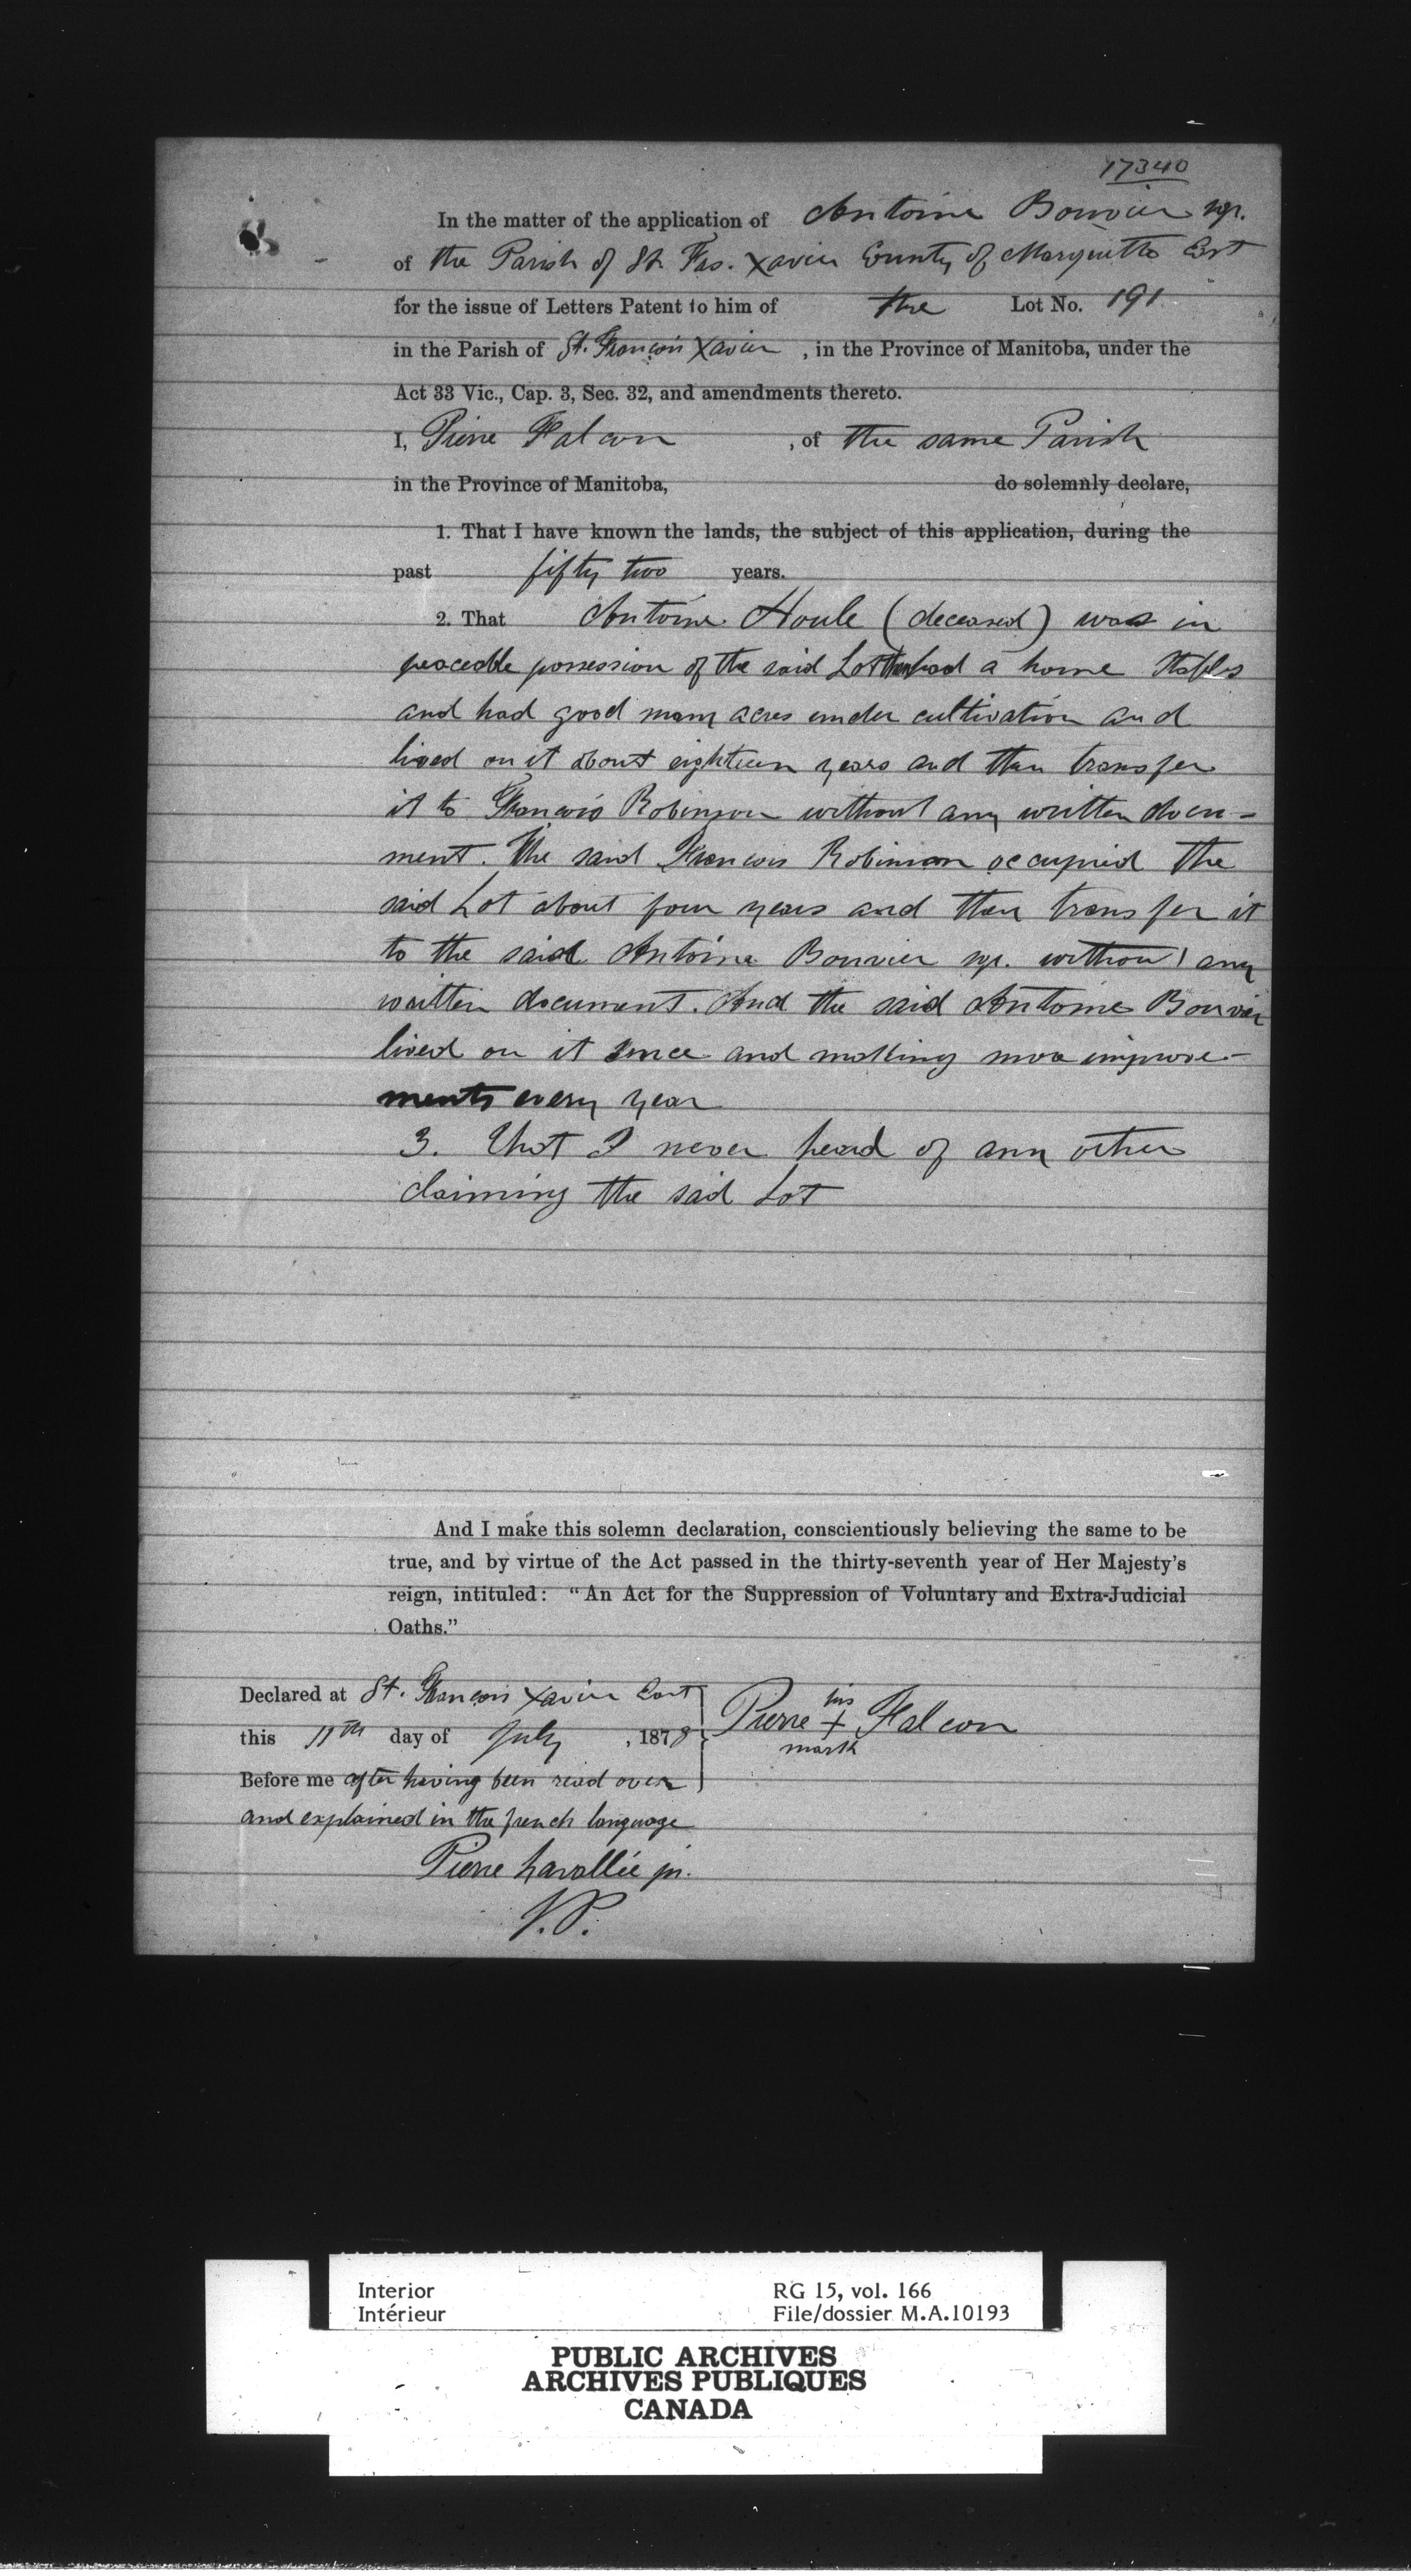 17340
In the matter of the application of Antoine Bouvier sr.
of the Parish of St. Frs. Xavier County of Marquette East
for the issue of Letters Patent to him of the Lot No. 191
in the Parish of St. François Xavier , in the Province of Manitoba, under the
Act 33 Vic., Cap. 3, Sec. 32, and amendments thereto.
I, Pierre Falcon , of the same Parish
in the Province of Manitoba, do solemnly declare,
1. That I have known the lands, the subject of this application, during the
past fifty two years.
2. That Antoine Houle (deceased) was in
peaceable possession of the said Lot had a home Stables
and had good many acres under cultivation and
lived on it about eighteen years and then transfer
it to François Robinson without any written docu-
ment. The said Francois Robinson occupied the
said Lot about four years and then transfer it
to the said Antoine Bouvier sr. without any
written document. And the said Antoine Bouvier
lived on it since and making more improve-
ments every year
3. That I never heard of any other
claiming the said Lot
And I make this solemn declaration, conscientiously believing the same to be
true, and by virtue of the Act passed in the thirty-seventh year of Her Majesty's
reign, intituled: "An Act for the Suppression of Voluntary and Extra-Judicial
Oaths."
Declared at St. François Xavier East
this 11th day of July , 1878
Before me after having been read over
and explained in the french language
Pierre his + Falcon
mark
Pierre Lavallée jr.
J.P.
Interior RG 15, vol. 166
Intérieur File/dossier M.A.10193
PUBLIC ARCHIVES
ARCHIVES PUBLIQUES
CANADA